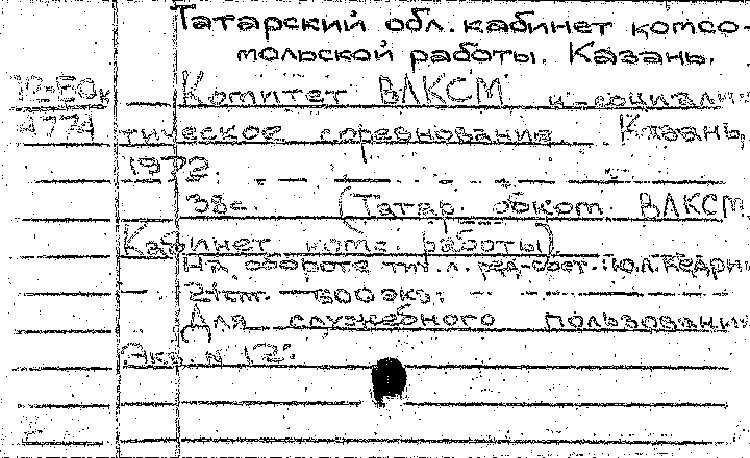 Татарский обл. кабинет комсо-
мольской работы. Казань.
Комитет ВЛКСМ и социалис-
4774 тическое соревнование. Казань,
1972.
38с. (Татар. обком ВЛКСМ.
Кабинет комс. работы)
На обороте тит. л. ред.-сост.: Ю.Л. Кедрин
21 cm. 600 экз.
Для служебного пользования
Экз. N 12.